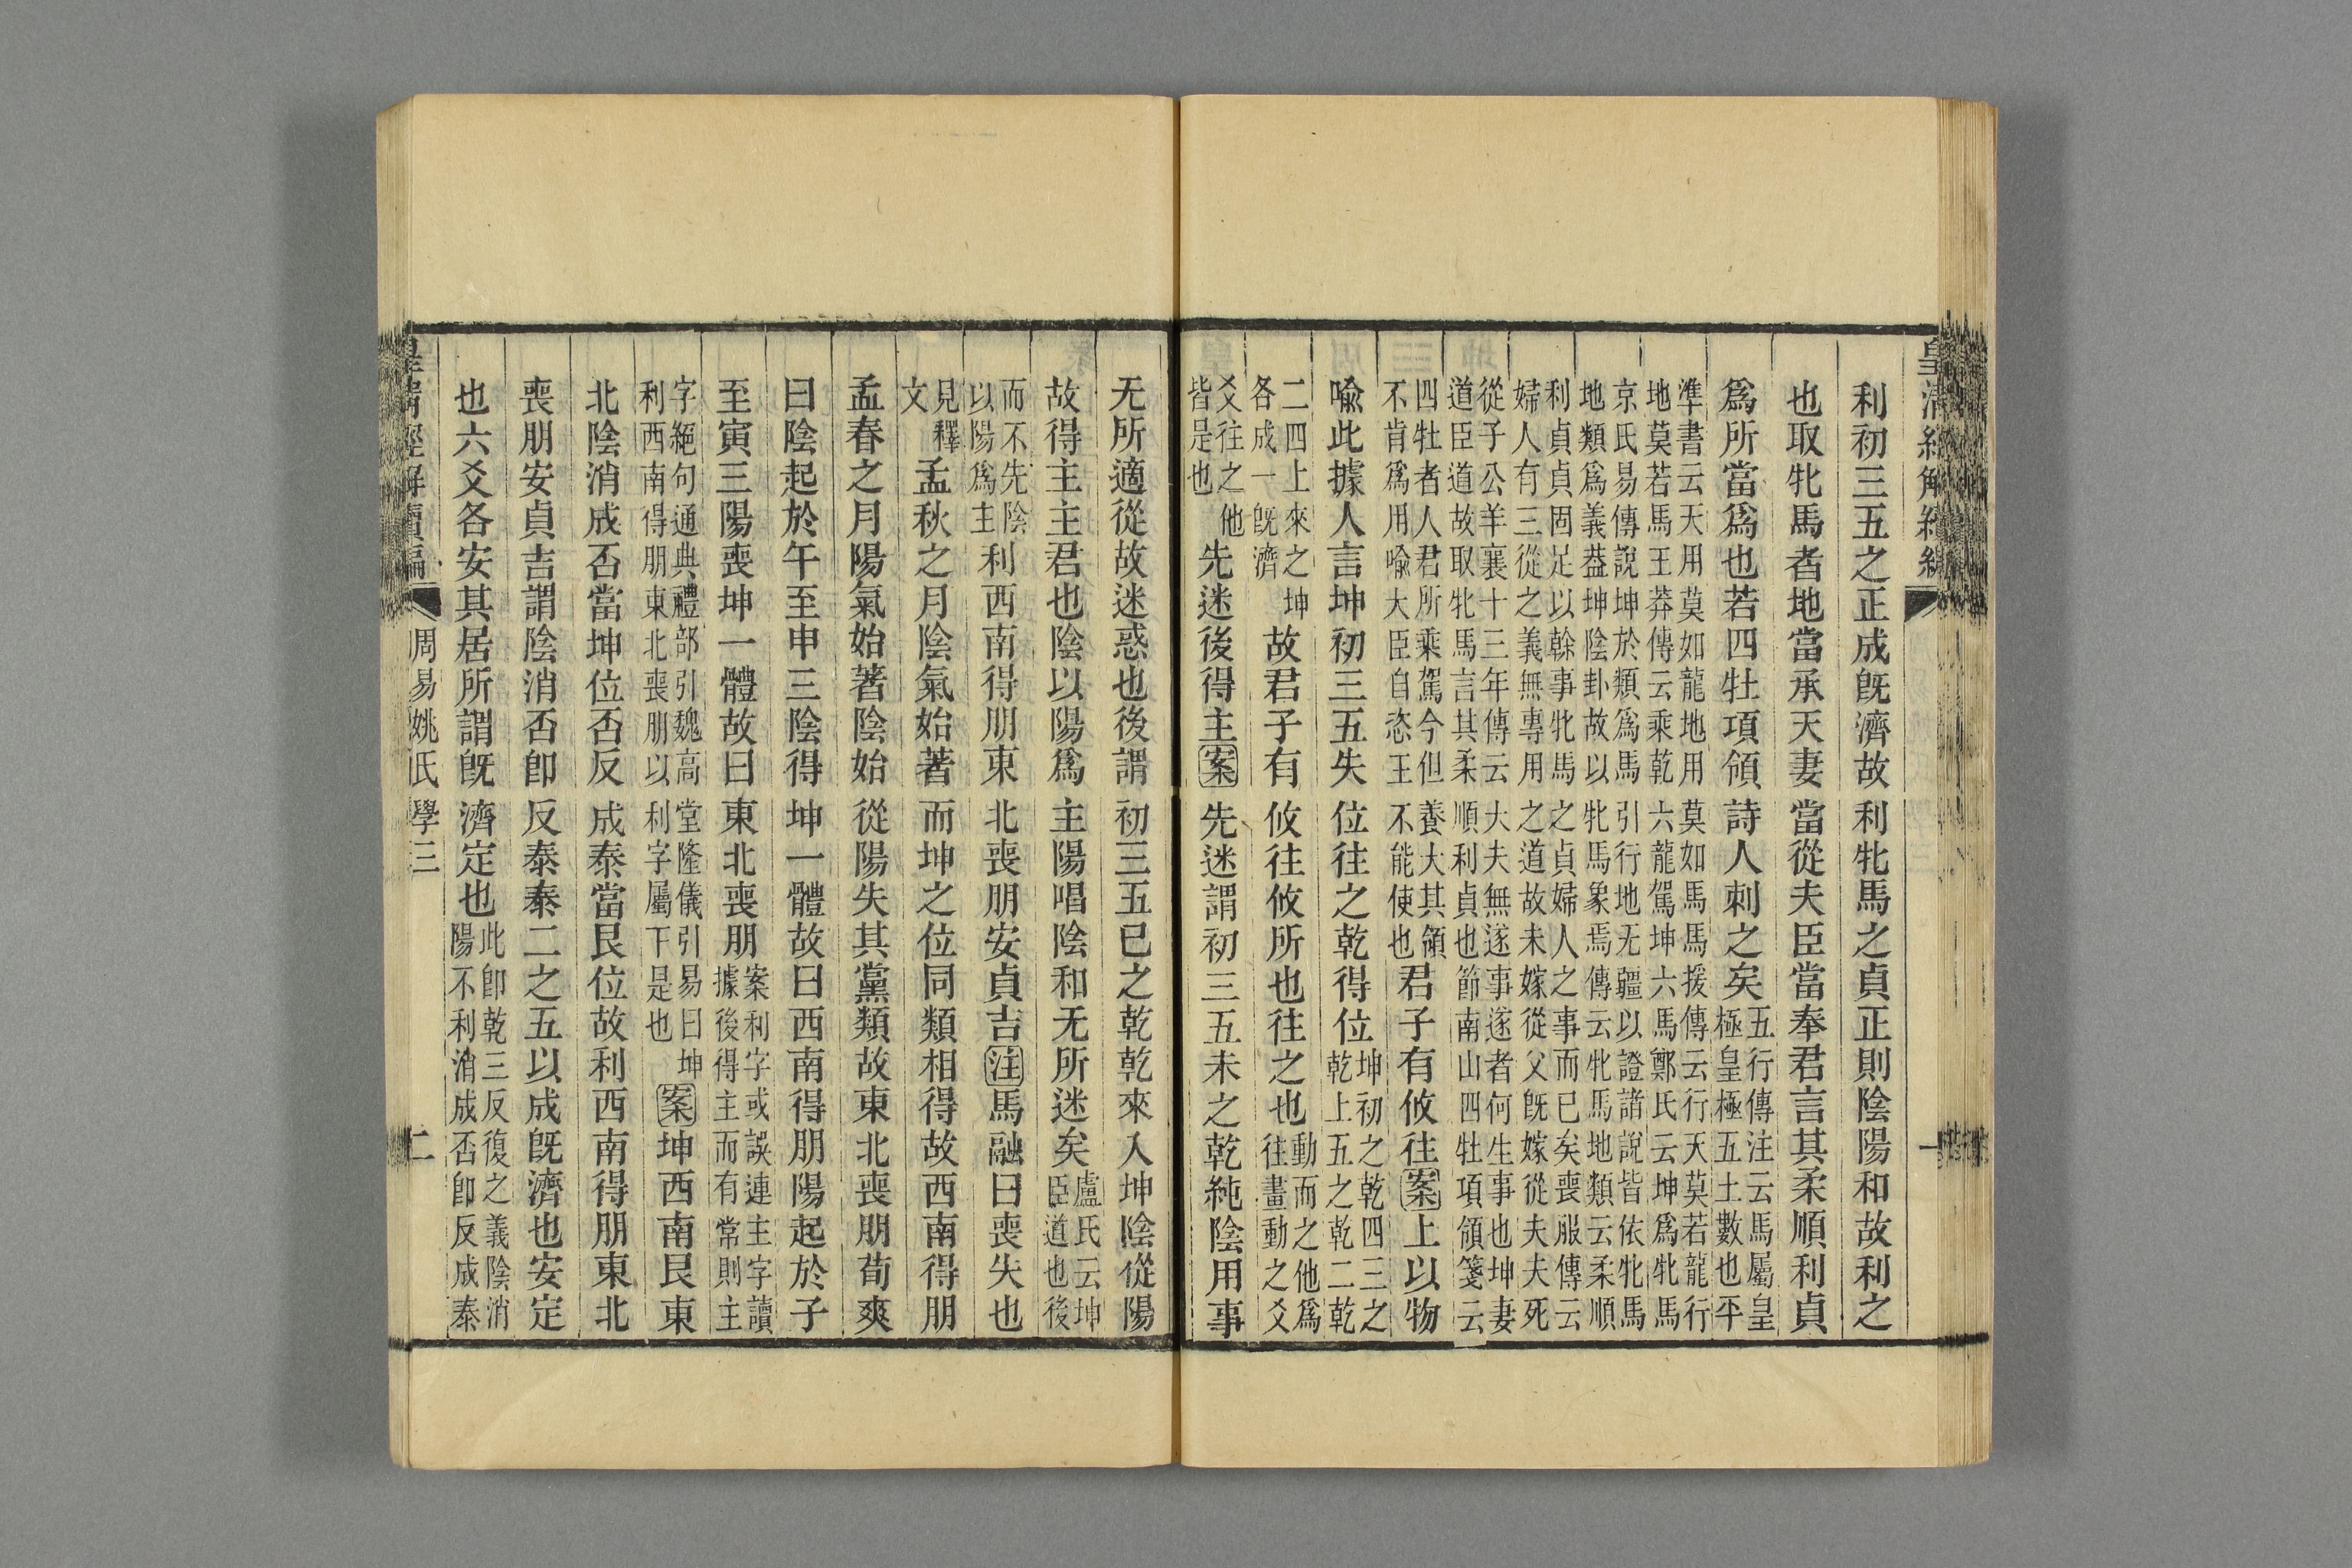 皇清經解續編
一
利初三五之正成旣濟故利牝馬之貞正則陰陽和故利之
也取牝馬者地當承天妻當從夫臣當奉君言其柔順利貞
爲所當爲也若四牡項領詩人刺之矣五行傳注云馬屬皇極皇極五土數也平
準書云天用莫如龍地用莫如馬馬援傳云行天莫若龍行
地莫若馬王莽傳云乘乾六龍駕坤六馬鄭氏云坤爲牝馬
京氏易傳說坤於類爲馬引行地无疆以證諸說皆依牝馬
地類爲義葢坤陰卦故以牝馬象焉傳云牝馬地類云柔順
利貞貞固足以榦事牝馬之貞婦人之事而巳矣喪服傳云
婦人有三從之義無專用之道故未嫁從父旣嫁從夫夫死
從子公羊襄十三年傳云大夫無遂事遂者何生事也坤妻
道臣道故取牝馬言其柔順利貞也節南山四牡項領箋云
四牡者人君所乘駕今但養大其領不肯爲用喩大臣自恣王不能使也君子有攸往案上以物
喩此據人言坤初三五失位往之乾得位坤初之乾四三之乾上五之乾二乾
二四上來之坤各成一旣濟故君子有攸往攸所也往之也動而之他爲往畫動之爻
爻往之他皆是也先迷後得主案先迷謂初三五未之乾純陰用事
无所適從故迷惑也後謂初三五巳之乾乾來入坤陰從陽
故得主主君也陰以陽爲主陽唱陰和无所迷矣盧氏云坤臣道也後
而不先陰以陽爲主利西南得朋東北喪朋安貞吉注馬融曰喪失也
見釋文孟秋之月陰氣始著而坤之位同類相得故西南得朋
孟春之月陽氣始著陰始從陽失其黨類故東北喪朋荀爽
曰陰起於午至申三陰得坤一體故曰西南得朋陽起於子
至寅三陽喪坤一體故曰東北喪朋案利字或誤連主字讀據後得主而有常則主
字絕句通典禮部引魏高堂隆儀引易曰坤利西南得朋東北喪朋以利字屬下是也案坤西南艮東
北陰消成否當坤位否反成泰當艮位故利西南得朋東北
喪朋安貞吉謂陰消否卽反泰泰二之五以成旣濟也安定
也六爻各安其居所謂旣濟定也此卽乾三反復之義陰消陽不利消成否卽反成泰
皇清經解續編
周易姚氏學三
二